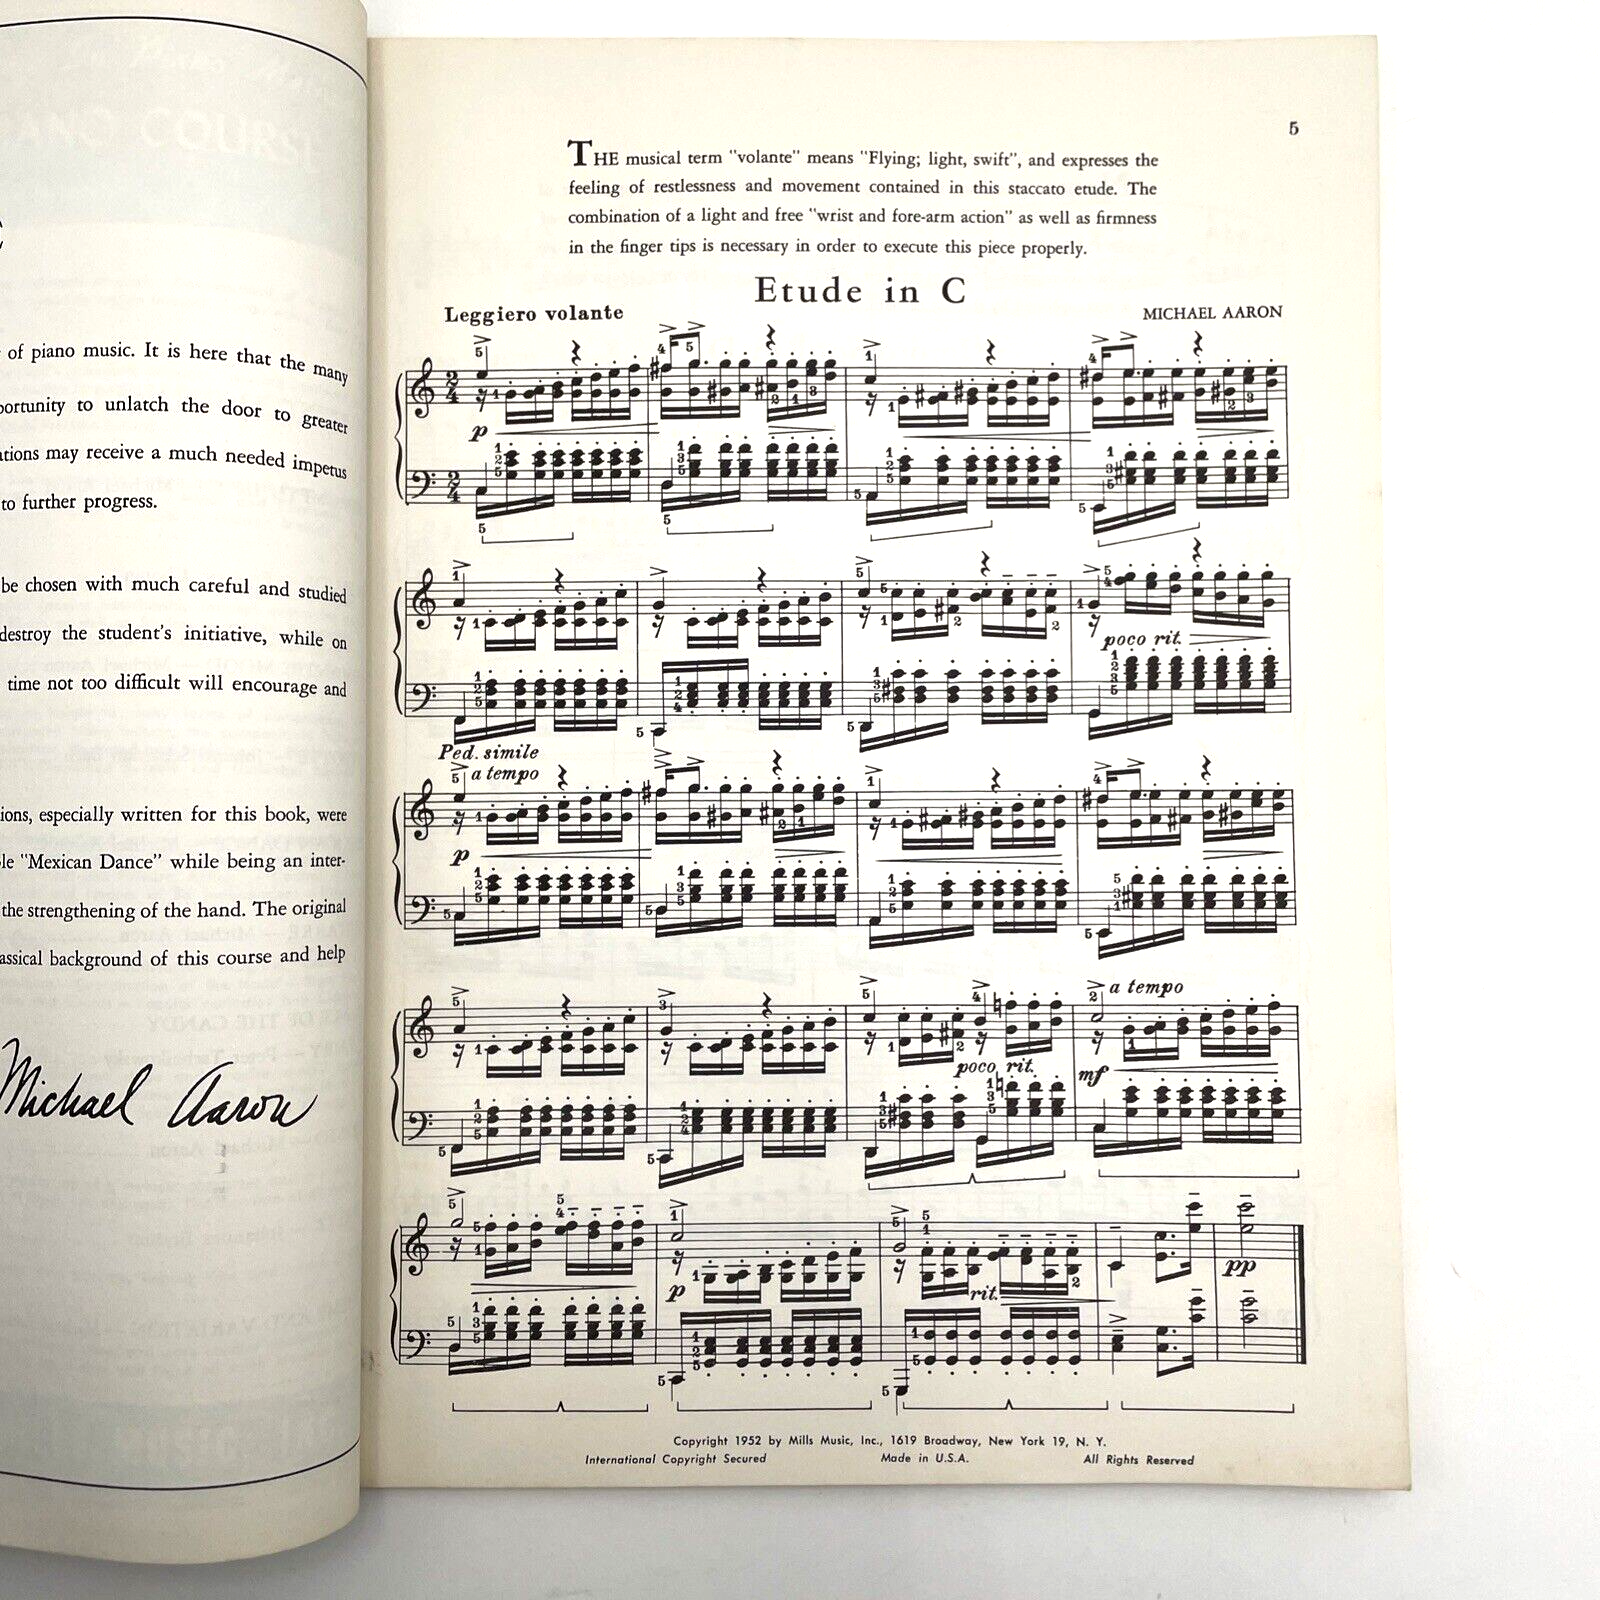 PIANO COURSE
of piano music. It is here that the many
opportunity to unlatch the door to greater
may receive a much needed impetus
to further progress.
be chosen with much careful and studied
destroy the student's initiative, while on
time not too difficult will encourage and
especially written for this book, were
"Mexican Dance" while being an inter-
the strengthening of the hand. The original
background of this course and help
Michael Aaron
5
THE musical term "volante" means "Flying; light, swift", and expresses the
feeling of restlessness and movement contained in this staccato etude. The
combination of a light and free "wrist and fore-arm action" as well as firmness
in the finger tips is necessary in order to execute this piece properly.
Etude in C
Leggiero volante
MICHAEL AARON
p
poco rit.
Ped. simile
a tempo
p
poco rit.
a tempo
mf
p
rit.
pp
Copyright 1952 by Mills Music, Inc., 1619 Broadway, New York 19, N. Y.
International Copyright Secured Made in U.S.A. All Rights Reserved